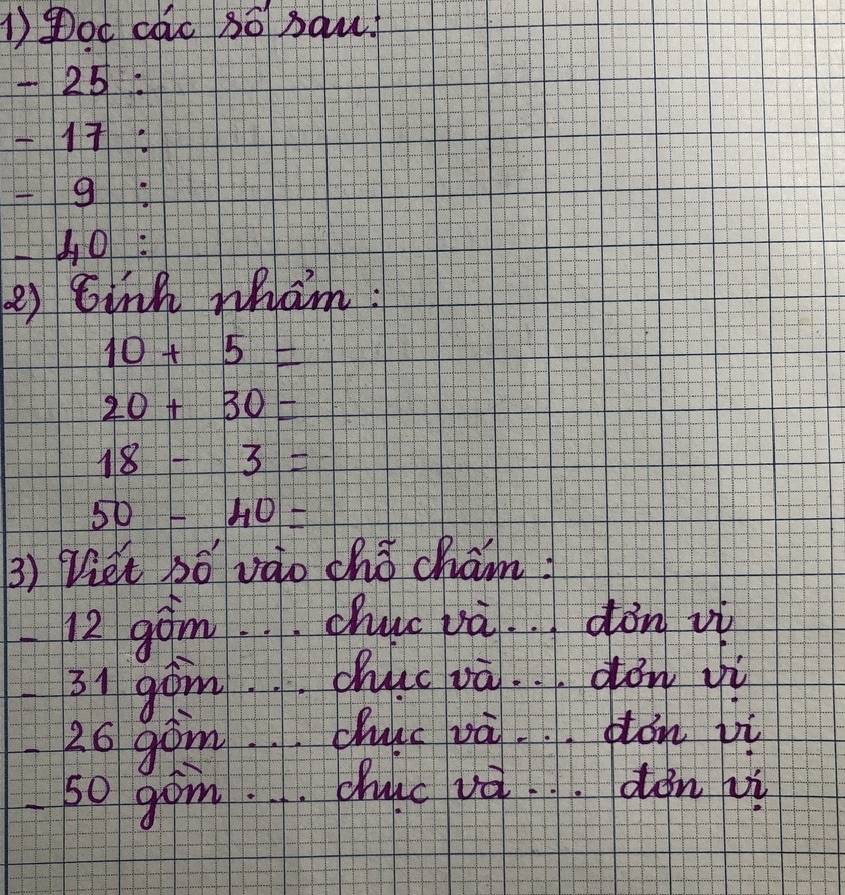 1) Đọc các số sau:
- 25 :
- 17 :
- 9 :
- 40 :
2) Tính nhẩm :
10 + 5 =
20 + 30 =
18 - 3 =
50 - 40 =
3) Viết số vào chỗ chấm :
- 12 gồm ... chục và ... đơn vị
- 31 gồm ... chục và ... đơn vị
- 26 gồm ... chục và ... đơn vị
- 50 gồm ... chục và ... đơn vị